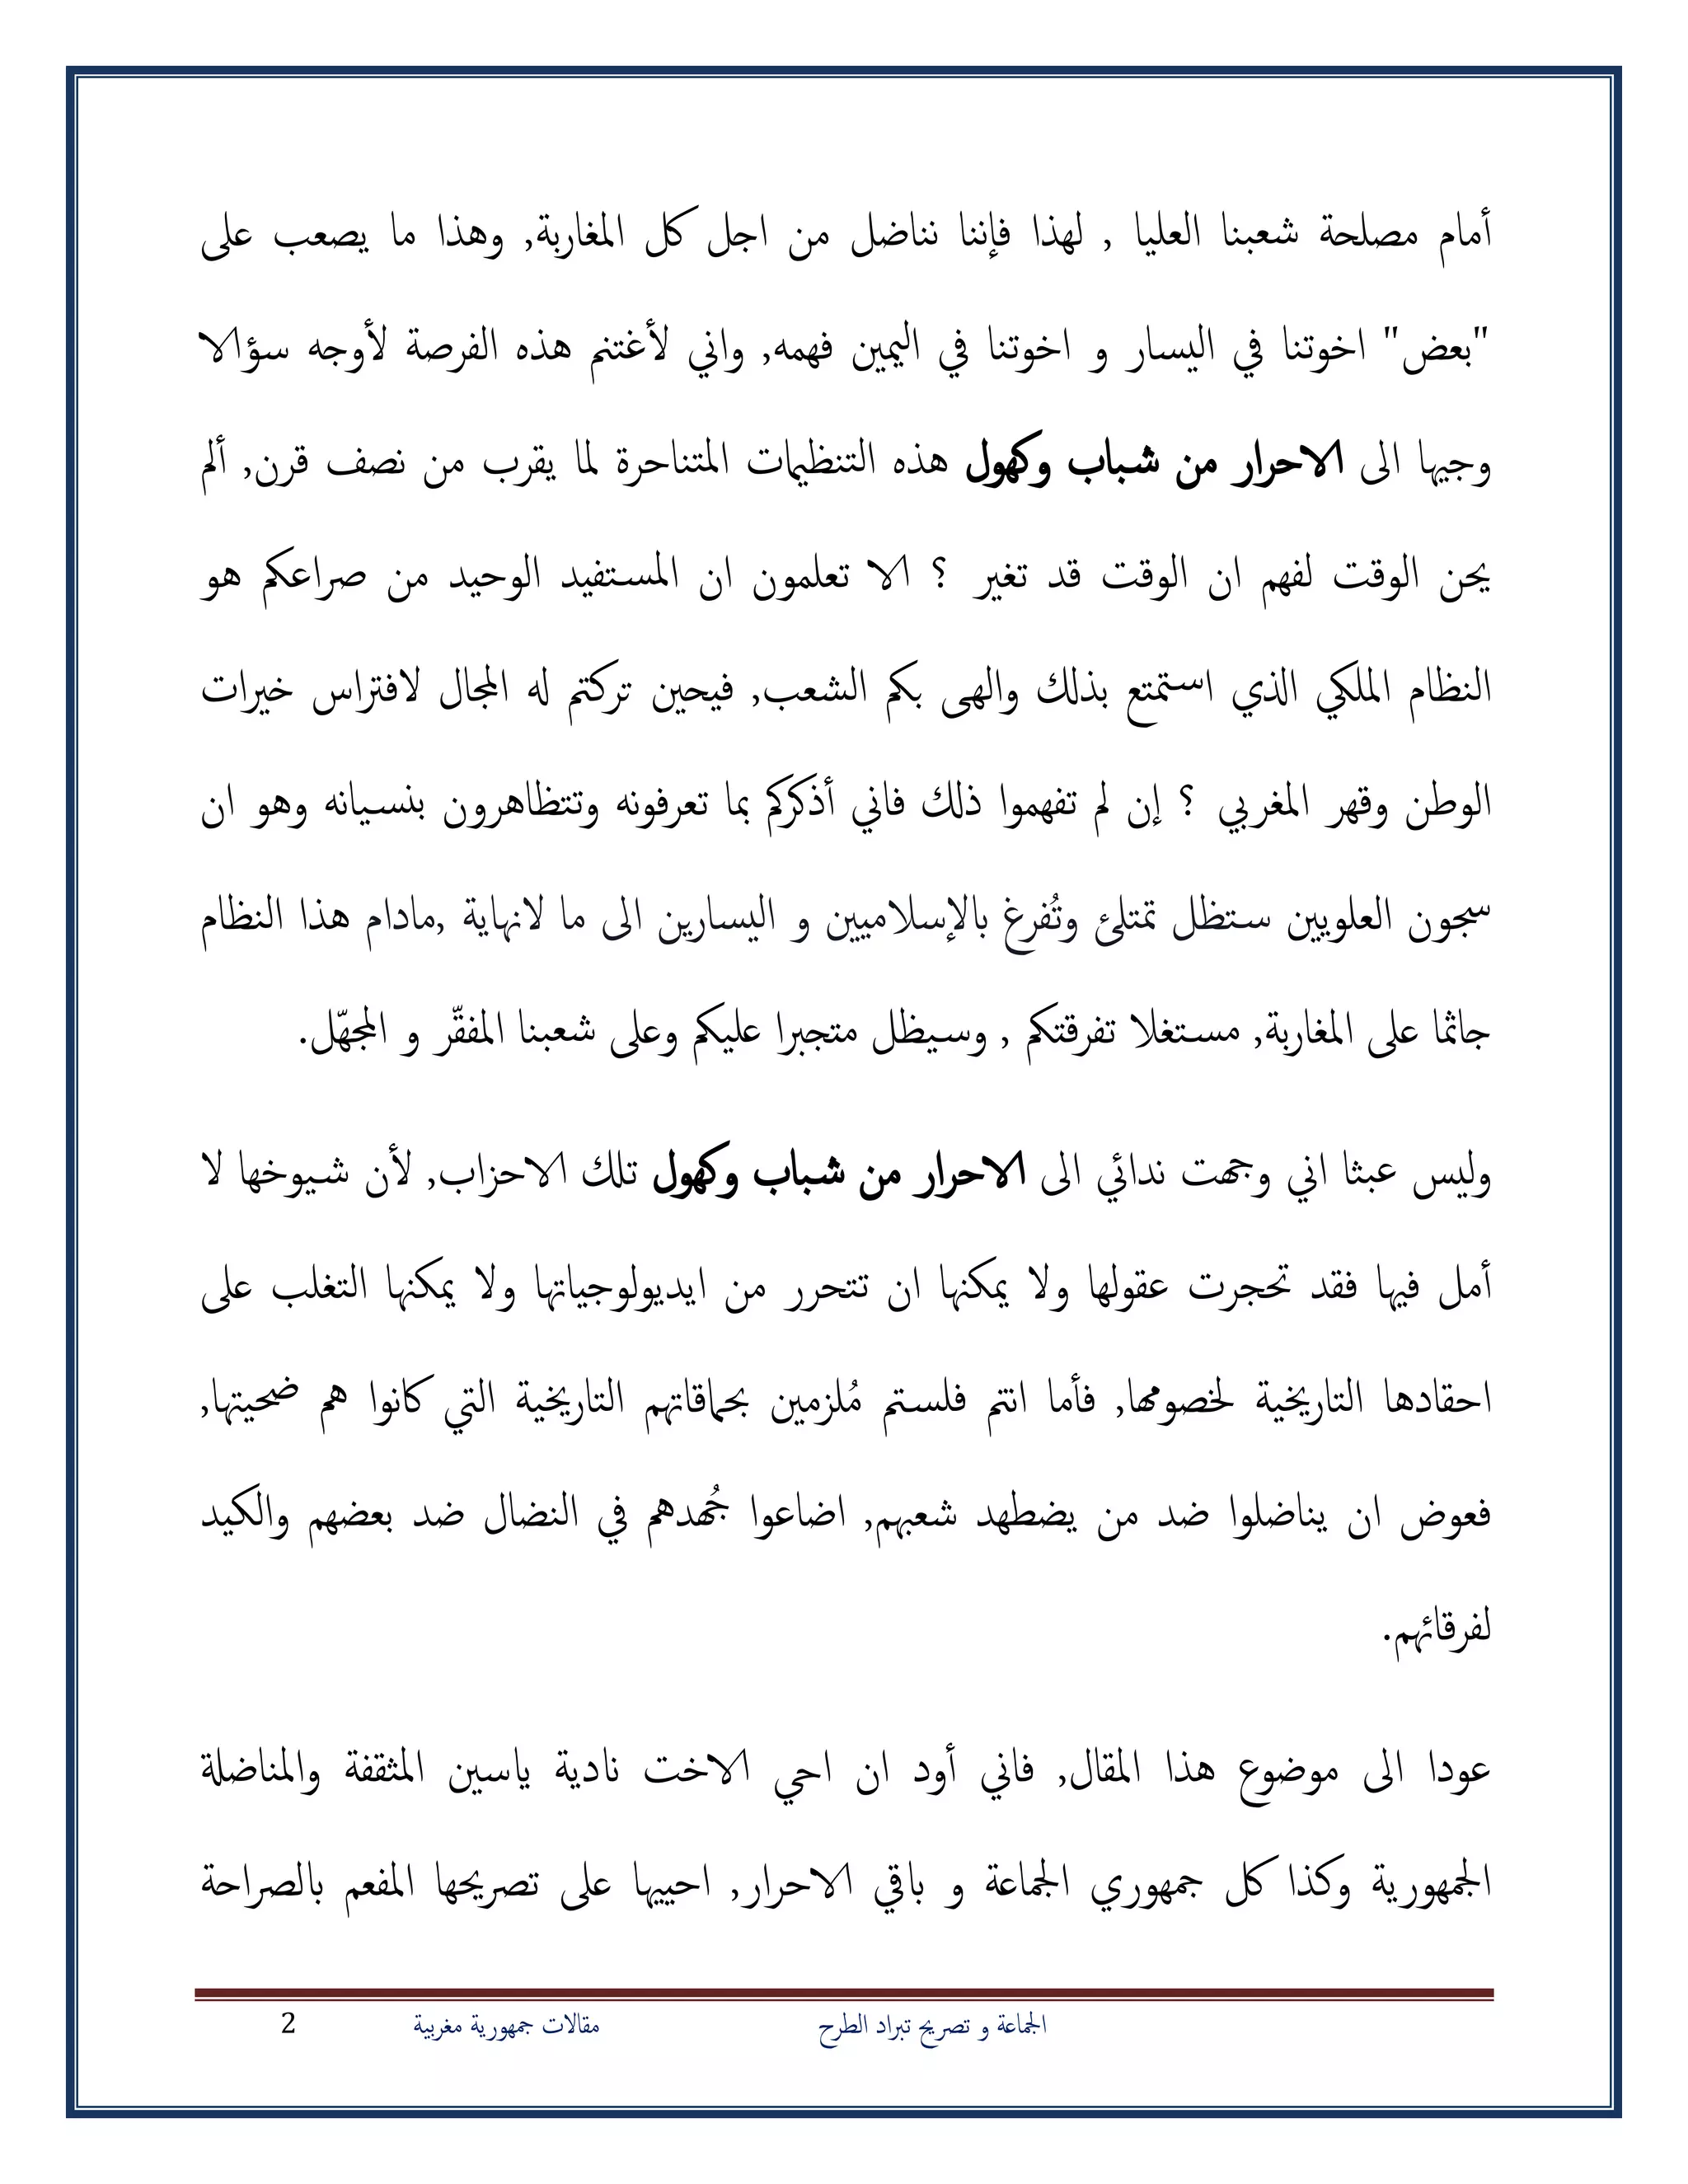 أمام مصلحة شعبنا العليا , لهذا فإننا نناضل من اجل كل المغاربة, وهذا ما يصعب على
"بعض" اخوتنا في اليسار و اخوتنا في اليمين فهمه, واني لأغتنم هذه الفرصة لأوجه سؤالا
وجيها الى الاحرار من شباب وكهول هذه التنظيمات المتناحرة لما يقرب من نصف قرن, ألم
يحن الوقت لفهم ان الوقت قد تغير ؟ الا تعلمون ان المستفيد الوحيد من صراعكم هو
النظام الملكي الذي استمتع بذلك والهى بكم الشعب, فيحين تركتم له المجال لافتراس خيرات
الوطن وقهر المغربي ؟ إن لم تفهموا ذلك فاني أذكركم بما تعرفونه وتتظاهرون بنسيانه وهو ان
سجون العلويين ستظل تمتلئ وتُفرغ بالإسلاميين و اليسارين الى ما لانهاية ,مادام هذا النظام
جاثما على المغاربة, مستغلا تفرقتكم , وسيظل متجبرا عليكم وعلى شعبنا المفقّر و المجهّل.
وليس عبثا اني وجهت ندائي الى الاحرار من شباب وكهول تلك الاحزاب, لأن شيوخها لا
أمل فيها فقد تحجرت عقولها ولا يمكنها ان تتحرر من ايديولوجياتها ولا يمكنها التغلب على
احقادها التاريخية لخصومها, فأما انتم فلستم مُلزمين بحماقاتهم التاريخية التي كانوا هم ضحيتها,
فعوض ان يناضلوا ضد من يضطهد شعبهم, اضاعوا جُهدهم في النضال ضد بعضهم والكيد
لفرقائهم.
عودا الى موضوع هذا المقال, فاني أود ان احي الاخت نادية ياسين المثقفة والمناضلة
الجمهورية وكذا كل جمهوري الجماعة و باقي الاحرار, احييها على تصريحها المفعم بالصراحة
الجماعة و تصريح تبراد الطرح مقالات جمهورية مغربية 2